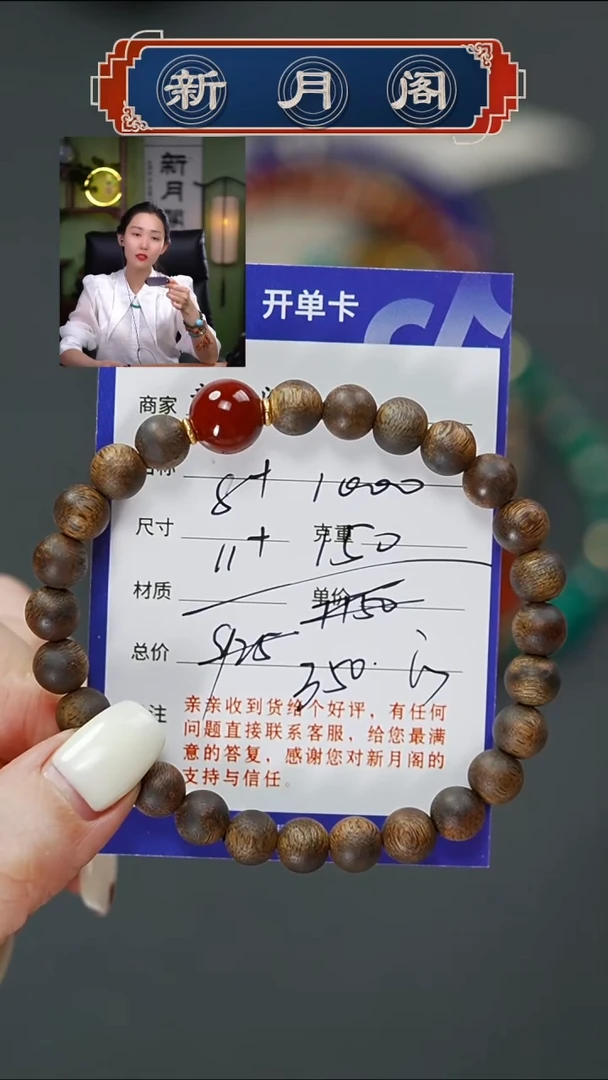 新月阁
新月阁
开单卡
商家
名称
8+ 1000
尺寸
克重
11+ 150
材质
单价
1150
总价
350.
亲亲收到货给个好评，有任何
问题直接联系客服，给您最满
意的答复，感谢您对新月阁的
支持与信任。